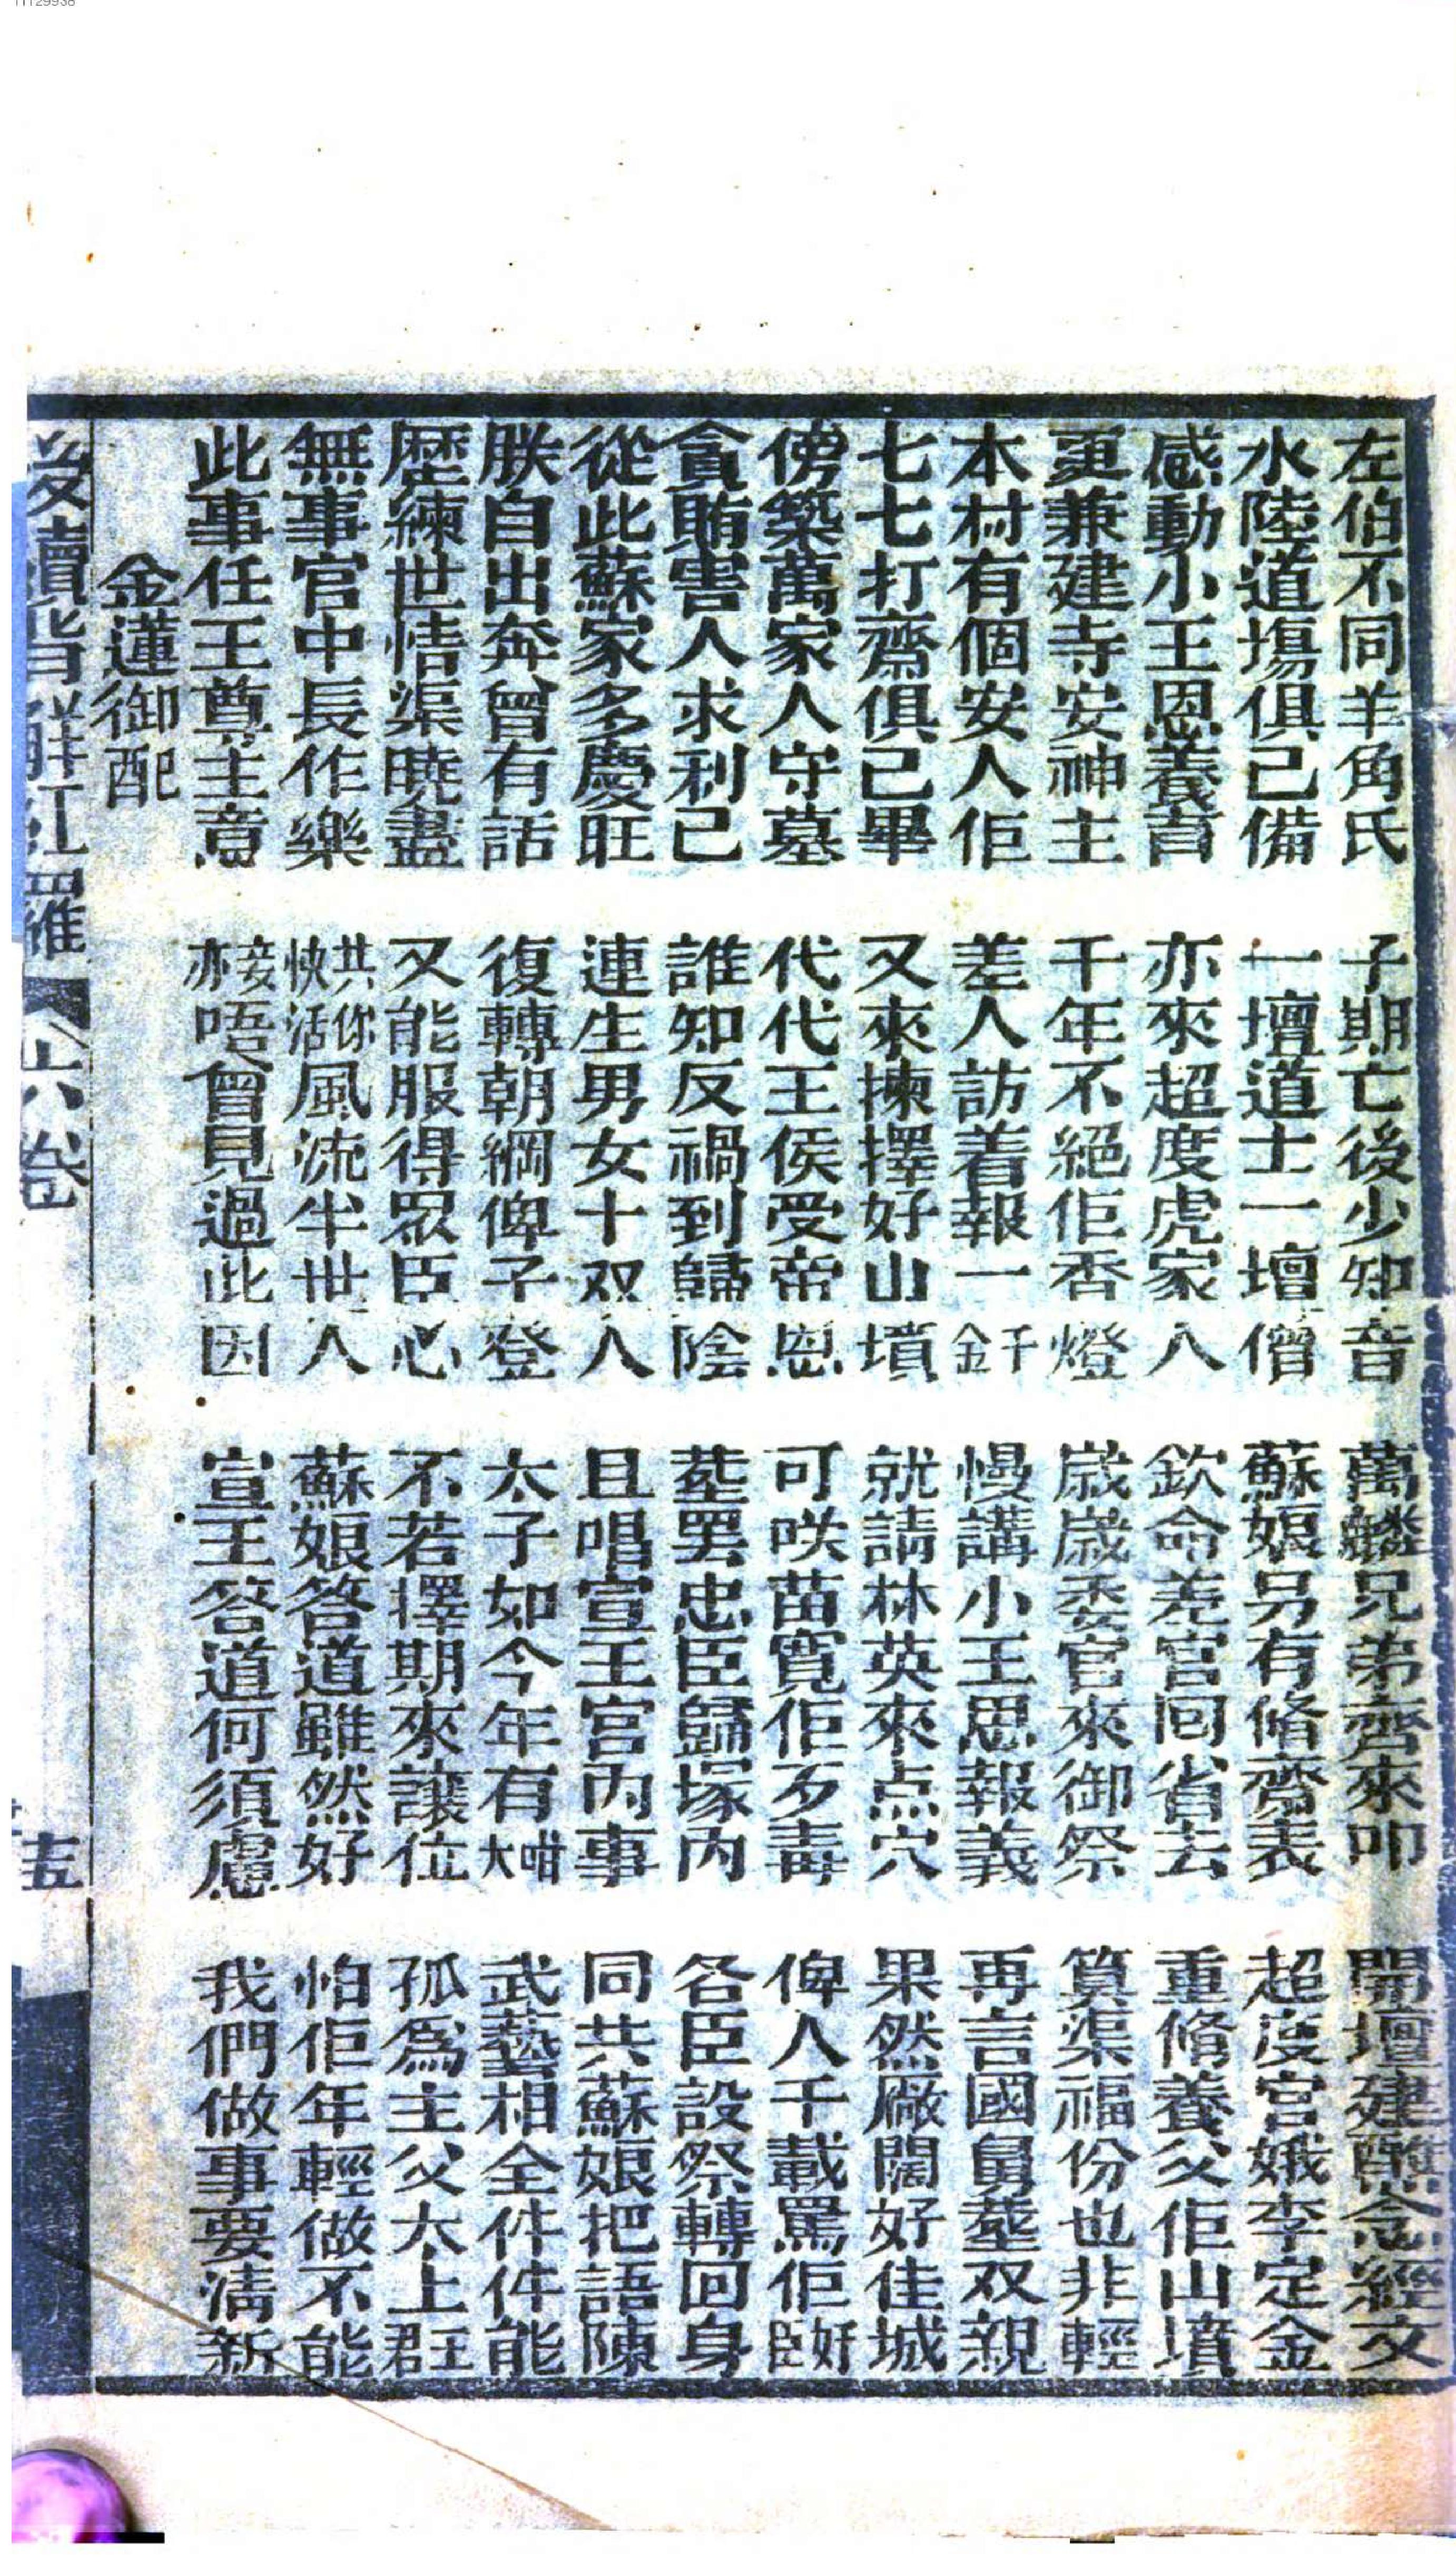 11129938
左伯不同羊角氏 子期亡後少知音 萬麟兄弟齊來叩 開壇建醮念經文
水陸道塲俱己備 一壇道士一壇僧 蘇娘另有脩齋表 超度宮娥李定金
感動小王恩養育 亦來超度虎家人 欽命差官囘省去 重脩養父佢山墳
更兼建寺安神主 千年不絕佢香燈 歲歲委官來御祭 算渠福份也非輕
本村有個安人佢 差人訪着報一千金 慢講小王思報義 再言國舅塟双親
七七打齋俱己畢 又來揀擇好山墳 就請林英來点穴 果然厰闊好佳城
傍築萬家人守墓 代代王侯受帝恩 可咲苗寬佢歹毒 俾人千載罵佢奸臣
貪賄害人求利己 誰知反禍到歸陰 塟罢忠臣歸塚內 各臣設祭轉回身
從此蘇家多慶旺 連生男女十双人 且唱宣王宮內事 同共蘇娘把語陳
朕自出奔曾有話 復轉朝綱俾子登 太子如今年有咁大 武藝相全件件能
歷練世情渠曉盡 又能服得眾臣心 不若擇期來讓位 孤為主父太上君王
無事宮中長作樂 共你快活風流半世人 蘇娘答道雖然好 怕佢年輕做不能
此事任王尊主意 妾亦唔曾見過此因 宣王答道何須慮 我們做事要清新
金蓮御配
後續背解紅羅 六卷 十五